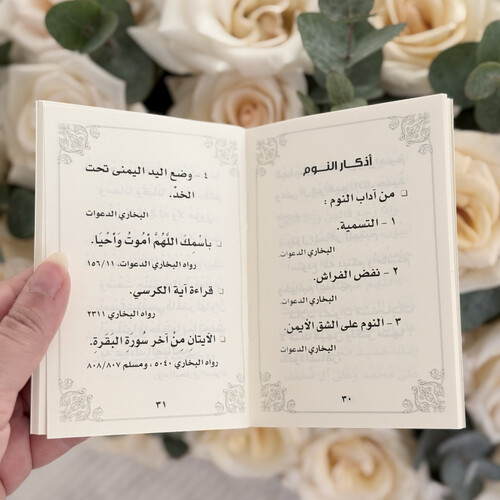 أذكار النوم
□ من آداب النوم :
١ - التسمية.
البخاري الدعوات.
٢ - نفض الفراش.
البخاري الدعوات.
٣ - النوم على الشق الأيمن.
البخاري الدعوات
٣٠
٤ - وضع اليد اليمنى تحت
الخدّ.
البخاري الدعوات
□ بِاسْمِكَ اللَّهُمَّ أَمُوتُ وَأَحْيَا.
رواه البخاري الدعوات، ١٥٦/١١
□ قراءة آية الكرسي.
رواه البخاري ٢٣١١
□ الآيتانِ مِنْ آخرِ سُورَةِ البَقَرةِ.
رواه البخاري ٥٠٤٠، ومسلم ٨٠٨/٨٠٧
٣١